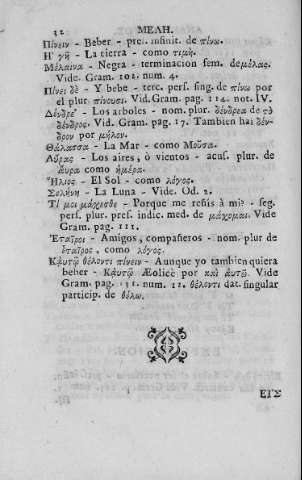 32 ΜΕΛΗ.
Πίνειν - Beber - pres. infinit. de πίνω.
Η' γῆ - La tierra - como τιμή.
Μέλαινα - Negra - terminacion fem. de μέλας.
Vide. Gram. 102. num. 4.
Πίνει δὲ - Y bebe - terc. pers. sing. de πίνω por
el plur. πίνουσι. Vid. Gram. pag. 114. not. IV.
Δένδρε' - Los arboles - nom. plur. δένδρεα de τὸ
δένδρος. Vid. Gram. pag. 17. Tambien hai δέν-
δρον por μῆλον.
Θάλασσα - La Mar - como Μοῦσα.
Αὔρας - Los aires, ò vientos - acus. plur. de
αὔρα como ἡμέρα.
Ἥλιος - El Sol - como λόγος.
Σελήνη - La Luna - Vide. Od. 2.
Τί μοι μάχεσθε - Porque me reñis à mi? - seg.
pers. plur. pres. indic. med. de μάχομαι. Vide
Gram. pag. 111.
Ἑταῖροι - Amigos, compañeros - nom. plur de
ἑταῖρος, como λόγος.
Καὐτῷ θέλοντι πίνειν - Aunque yo tambien quiera
beber - Καὐτῷ Æolicè por καὶ αὐτῷ. Vide
Gram. pag. 151. num. 11. θέλοντι dat. singular
particip. de θέλω.
ΕΙΣ